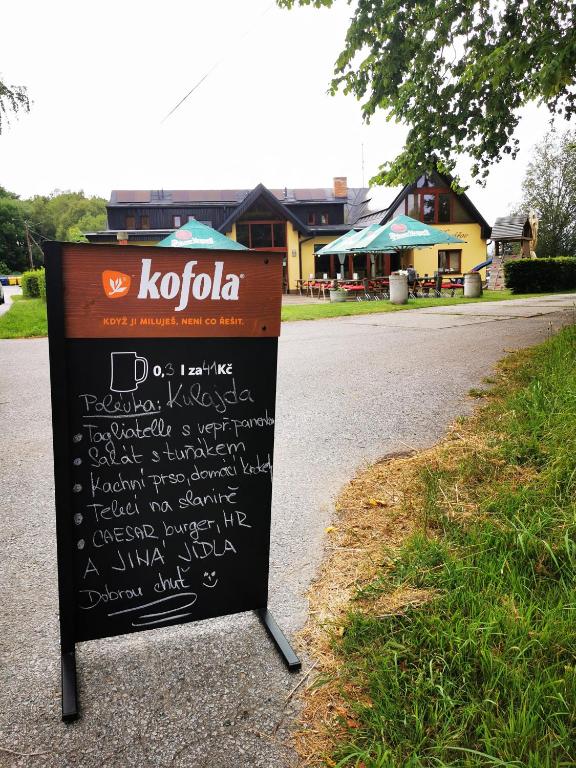 kofola
KDYŽ JI MILUJEŠ, NENÍ CO ŘEŠIT.
0,3 l za 41 Kč
Polévka: Kulajda
Tagliatelle s vepř. panenkou
Salát s tuňákem
Kachní prso, domácí
Telecí na slanině
CAESAR, burger, HR
A JINÁ JÍDLA
Dobrou chuť